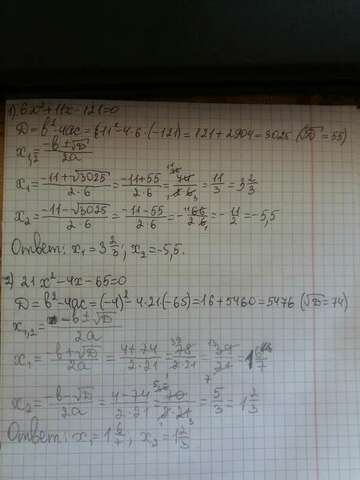 1) 6x²+11x-121=0
D=b²-4ac=(11)²-4·6·(-121)=121+2904=3025 (√D=55)
x₁,₂=-b±√D/2a
x₁=-11+√3025/2·6=-11+55/2·6=44/2·6=11/3=3 2/3
x₂=-11-√3025/2·6=-11-55/2·6=-66/2·6=-11/2=-5,5
Ответ: x₁=3 2/3; x₂=-5,5.
2) 21x²-4x-65=0
D=b²-4ac=(-4)²-4·21·(-65)=16+5460=5476 (√D=74)
x₁,₂=-b±√D/2a
x₁=-b+√D/2a=4+74/2·21=78/2·21=39/21=1 6/7
x₂=-b-√D/2a=4-74/2·21=70/2·21=5/3=1 2/3
Ответ: x₁=1 6/7, x₂=1 2/3